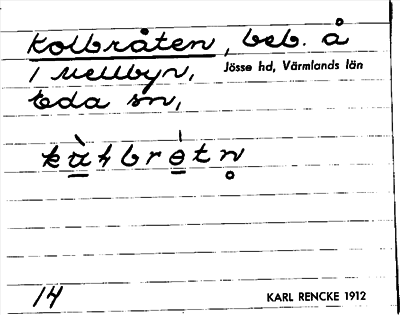 Kolbråten, beb. å
1 Mellbyn, Jösse hd, Värmlands län
Eda sn,
14 KARL RENCKE 1912